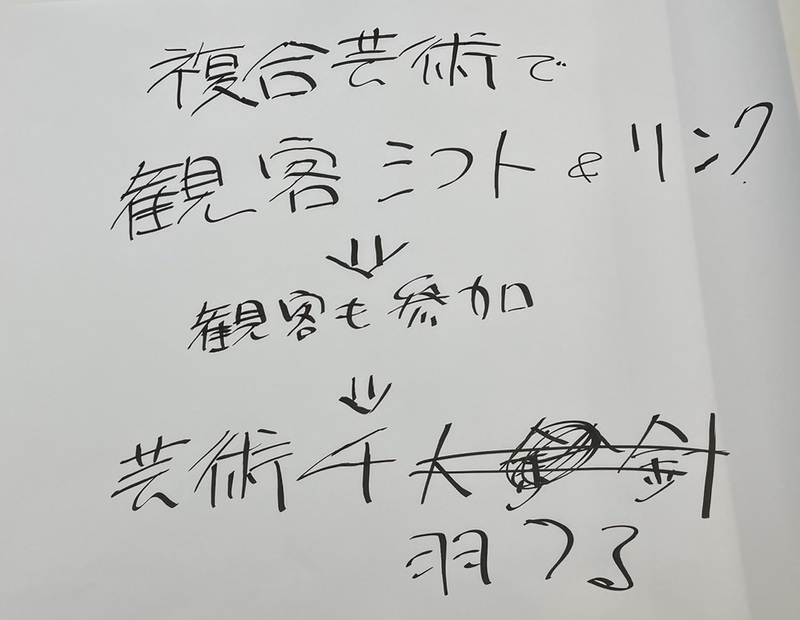 複合芸術で
観客ミフト&リンク
⇓
観客も参加
⇓
芸術千人針
羽つる